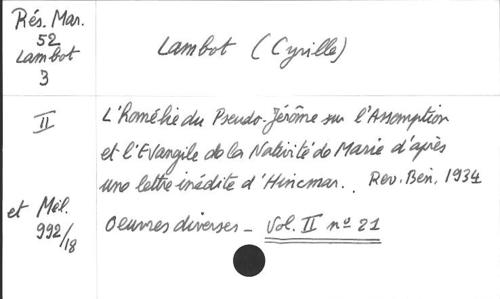 Rés. Mar.
52
Lambot
3
Lambot (Cyrille)
II
L'homélie du Pseudo-Jérôme sur l'Assomption
et l'Evangile de la Nativité de Marie d'après
une lettre inédite d'Hincmar. Rev. Ben, 1934
et Mél.
992/18
Oeuvres diverses - Vol. II nº 21